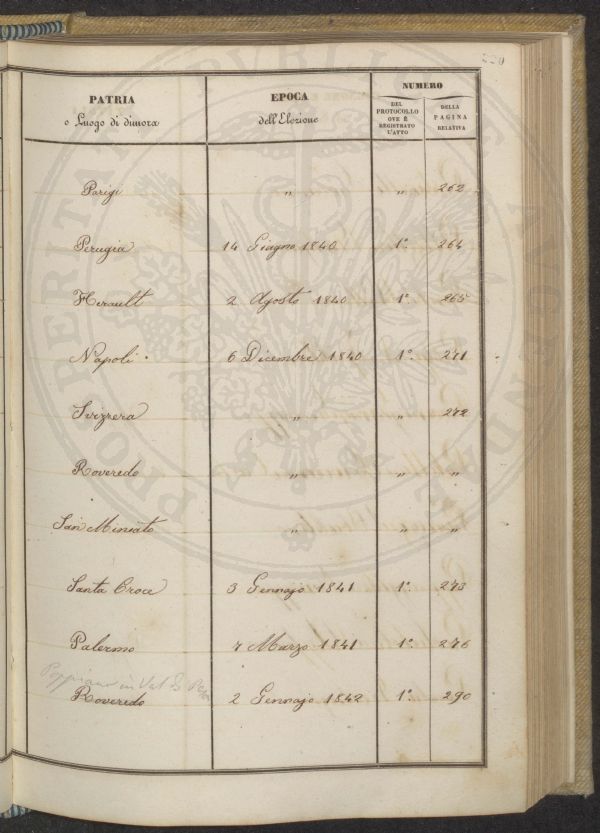 PATRIA
o Luogo di dimora
EPOCA
dell'Elezione
NUMERO
DEL
PROTOCOLLO
OVE È
REGISTRATO
L'ATTO
DELLA
PAGINA
RELATIVA
Parigi " " 262
Perugia 14 Giugno 1840 1°. 264
Herault 2 Agosto 1840 1°. 265
Napoli. 6 Dicembre 1840 1°. 271
Svizzera " " 272
Roveredo " " "
San Miniato " " "
Santa Croce 3 Gennajo 1841 1°. 273
Palermo 7 Marzo 1841 1°. 276
in Val di
Roveredo 2 Gennajo 1842 1°. 290